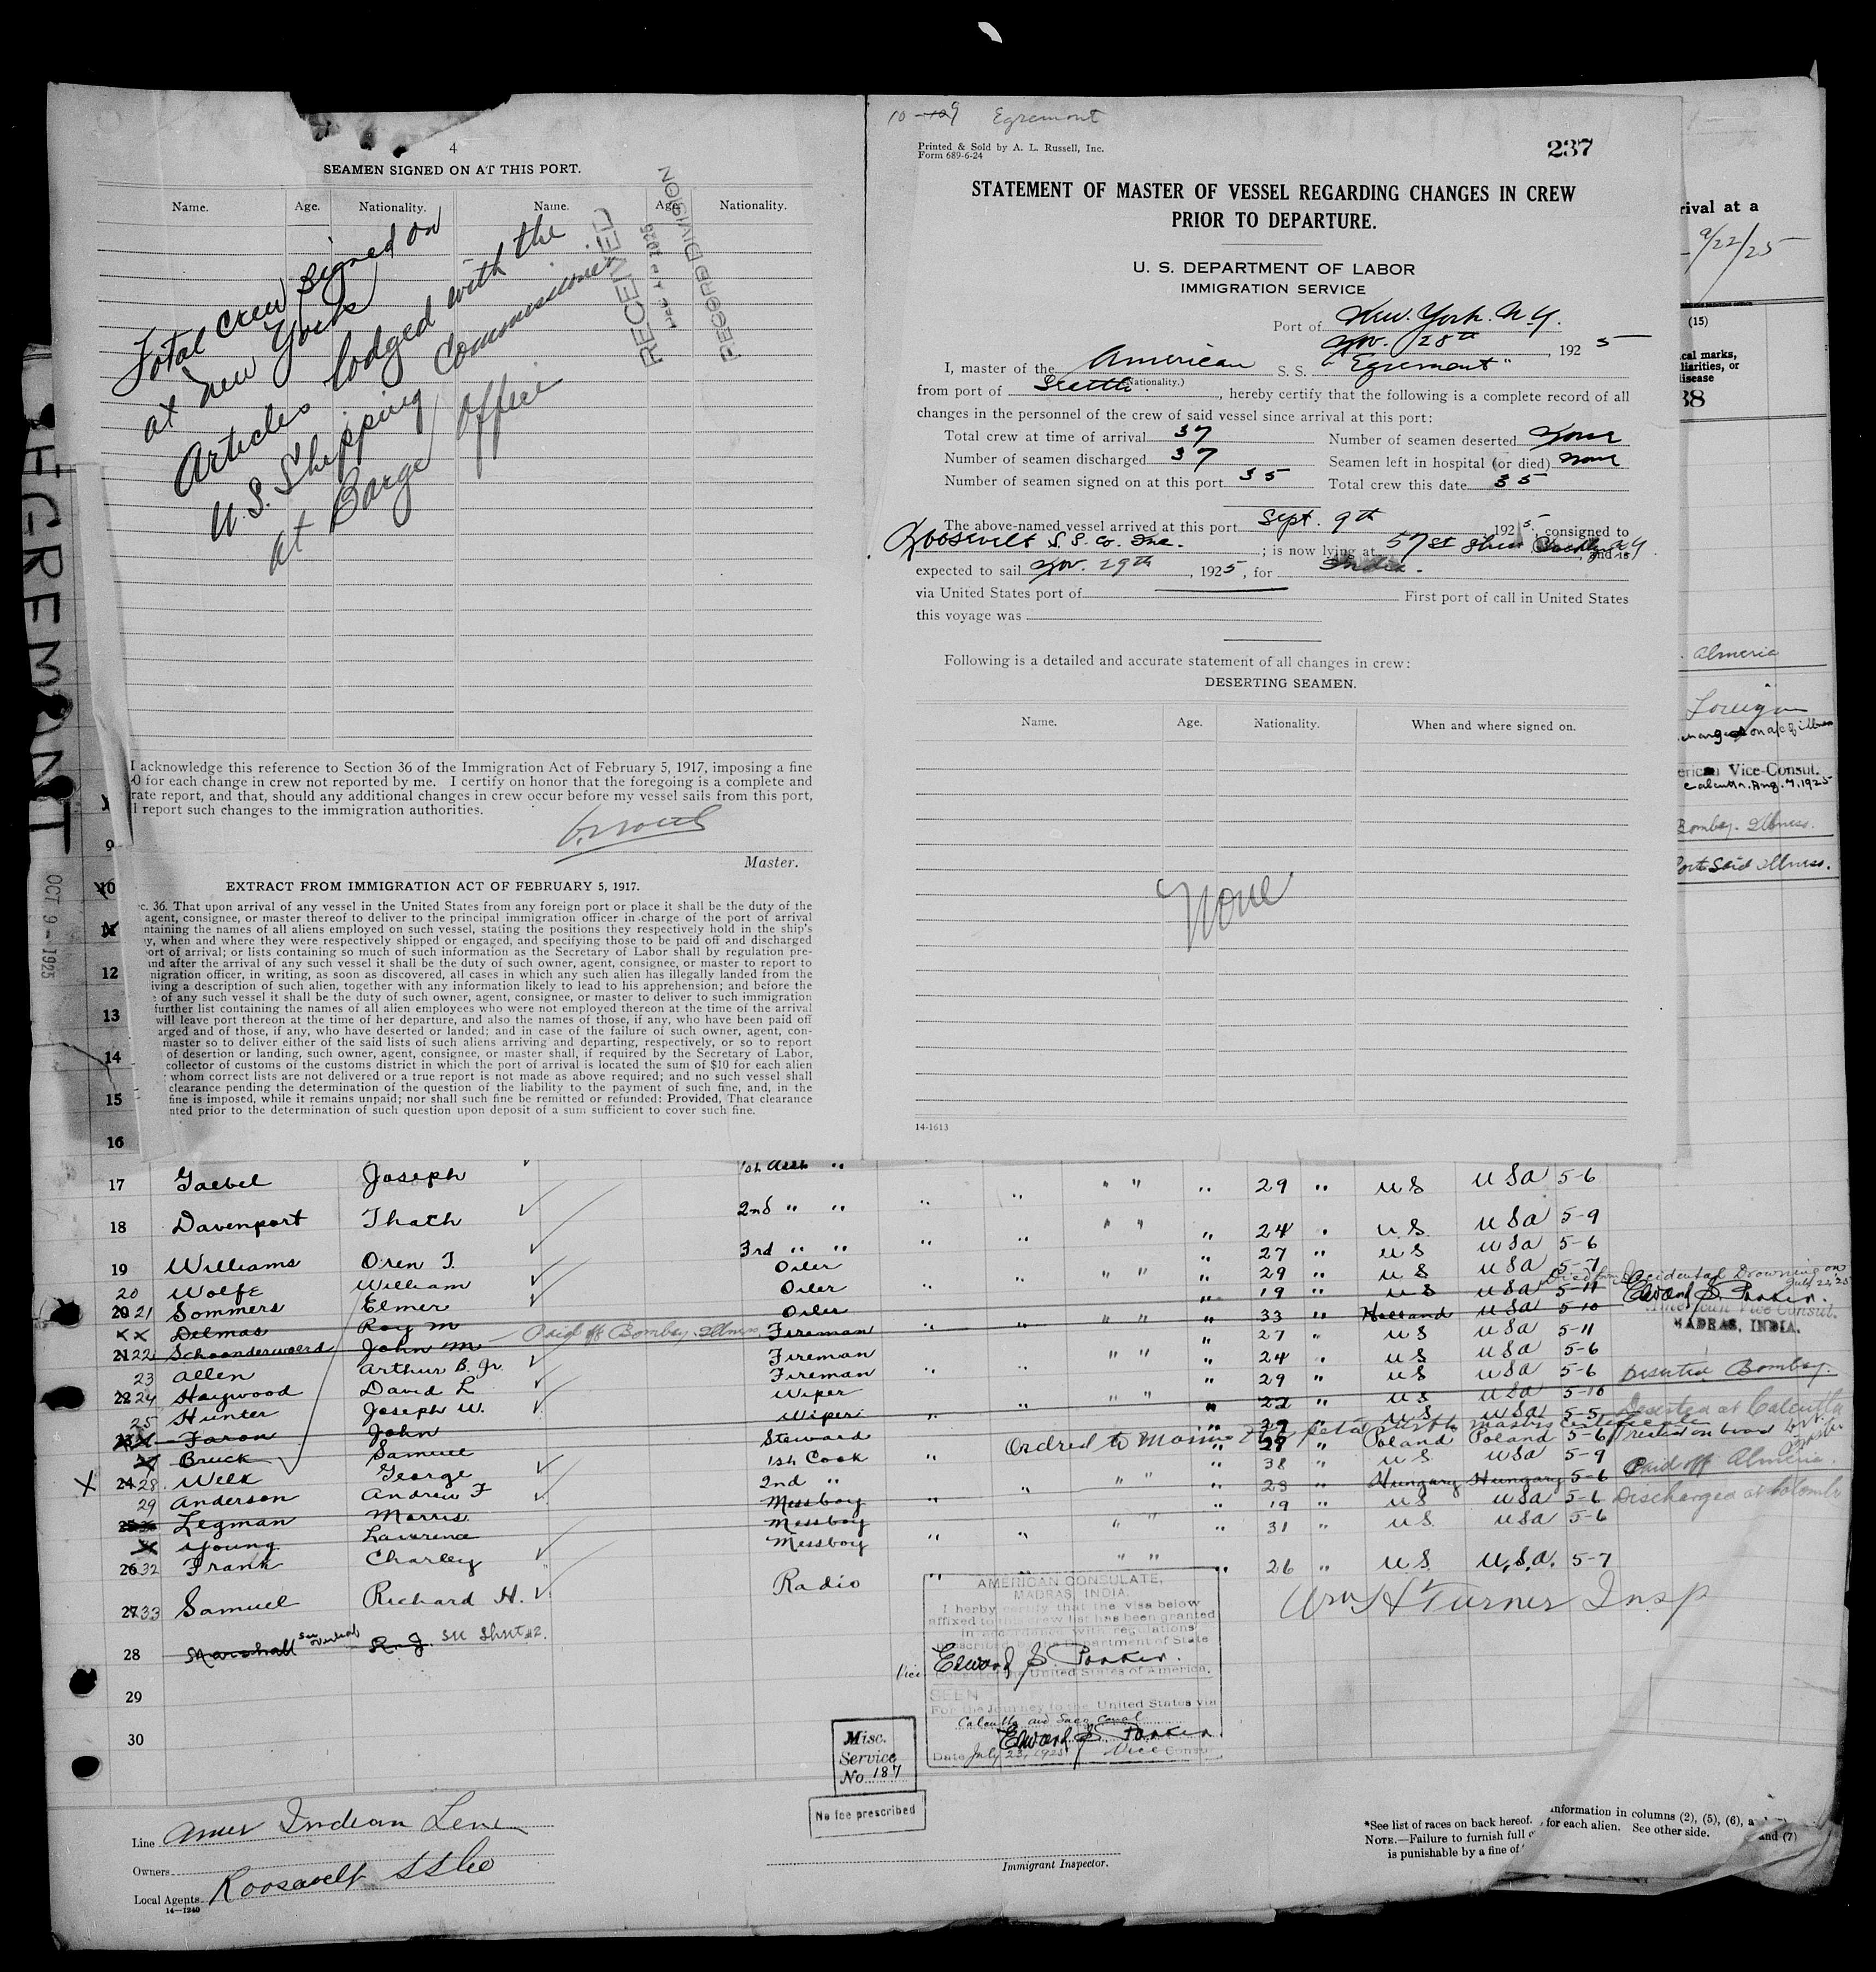 4
SEAMEN SIGNED ON AT THIS PORT.
Name. Age. Nationality. Name. Age. Nationality.
Total crew signed on
at New York
Articles lodged with the
U.S. Shipping Commissioner
at Barge Office
RECEIVED
RECORD DIVISION
I acknowledge this reference to Section 36 of the Immigration Act of February 5, 1917, imposing a fine
0 for each change in crew not reported by me. I certify on honor that the foregoing is a complete and
rate report, and that, should any additional changes in crew occur before my vessel sails from this port,
l report such changes to the immigration authorities.
Master.
EXTRACT FROM IMMIGRATION ACT OF FEBRUARY 5, 1917.
c. 36. That upon arrival of any vessel in the United States from any foreign port or place it shall be the duty of the
agent, consignee, or master thereof to deliver to the principal immigration officer in charge of the port of arrival
ntaining the names of all aliens employed on such vessel, stating the positions they respectively hold in the ship's
y, when and where they were respectively shipped or engaged, and specifying those to be paid off and discharged
ort of arrival; or lists containing so much of such information as the Secretary of Labor shall by regulation pre-
and after the arrival of any such vessel it shall be the duty of such owner, agent, consignee, or master to report to
migration officer, in writing, as soon as discovered, all cases in which any such alien has illegally landed from the
iving a description of such alien, together with any information likely to lead to his apprehension; and before the
of any such vessel it shall be the duty of such owner, agent, consignee, or master to deliver to such immigration
further list containing the names of all alien employees who were not employed thereon at the time of the arrival
will leave port thereon at the time of her departure, and also the names of those, if any, who have been paid off
arged and of those, if any, who have deserted or landed; and in case of the failure of such owner, agent, con-
master so to deliver either of the said lists of such aliens arriving and departing, respectively, or so to report
of desertion or landing, such owner, agent, consignee, or master shall, if required by the Secretary of Labor,
collector of customs of the customs district in which the port of arrival is located the sum of $10 for each alien
whom correct lists are not delivered or a true report is not made as above required; and no such vessel shall
clearance pending the determination of the question of the liability to the payment of such fine, and, in the
fine is imposed, while it remains unpaid; nor shall such fine be remitted or refunded: Provided, That clearance
nted prior to the determination of such question upon deposit of a sum sufficient to cover such fine.
EGREMONT
OCT 9 - 1925
10 - 9 Egremont
Printed & Sold by A. L. Russell, Inc.
Form 689-6-24
237
STATEMENT OF MASTER OF VESSEL REGARDING CHANGES IN CREW
PRIOR TO DEPARTURE.
U. S. DEPARTMENT OF LABOR
IMMIGRATION SERVICE
Port of New York. N.Y.
Nov. 28th, 1925
I, master of the American S. S. "Egremont"
(Nationality.)
from port of Seattle, hereby certify that the following is a complete record of all
changes in the personnel of the crew of said vessel since arrival at this port:
Total crew at time of arrival 37 Number of seamen deserted None
Number of seamen discharged 37 Seamen left in hospital (or died) None
Number of seamen signed on at this port 35 Total crew this date 35
The above-named vessel arrived at this port Sept. 9th, 1925, consigned to
Roosevelt S.S. Co. Inc. ; is now lying at 57 St and is
expected to sail, Nov. 29th, 1925, for India.
via United States port of First port of call in United States
this voyage was
Following is a detailed and accurate statement of all changes in crew:
DESERTING SEAMEN.
Name. Age. Nationality. When and where signed on.
None
14-1613
rival at a
9/22/25
(15)
cal marks,
liarities, or
disease
38
Almeria
Foreign
on a/c of illness
erican Vice-Consul.
Calcutta. Aug. 7. 1925
Bombay. Illness.
Port Said illness.
9
10
11
12
13
14
15
16
1st Asst "
17 Goebel Joseph 2nd " " " " " " " 29 " US USA 5-6
18 Davenport Thach 3rd " " " " " " " 24 " U.S. USA 5-9
19 Williams Oren T. Oiler 27 " US USA 5-6
20 Wolfe William Oiler 29 " US USA 5-7
20 21 Sommers Elmer Oiler 19 " US USA 5-11
Died from Accidental Drowning on July 22, '25
Edward S. Parker.
American Vice Consul.
MADRAS, INDIA.
x x Delmas Roy M Fireman 33 " Holland USA 5-10
21 22 Schoonderwoerd John M Paid off Bombay. Illness Fireman 27 " US USA 5-11
23 Allen Arthur B. Jr. Fireman 24 " US USA 5-6
24 Haywood David L Wiper 29 " US USA 5-6 Deserted Bombay.
25 Hunter Joseph W. Wiper 22 " US USA 5-10 Deserted at Calcutta
Faron John Steward US USA 5-5
Bruck Samuel 1st Cook Poland Poland 5-6
x 24 28 Welk George 2nd " 38 " US USA 5-9
29 Anderson Andrew F Messboy 23 " Hungary Hungary 5-6 Paid off Almeria.
Legman Morris Messboy 19 " US USA 5-6 Discharged at Colombo
Young Lawrence Messboy 31 " US USA 5-6
26 32 Frank Charley
27 33 Samuel Richard H. Radio 26 " US U.S.A. 5-7
28 Marshall R. J. See Sheet #2.
29
30
Wm H Turner Insp
AMERICAN CONSULATE,
MADRAS, INDIA.
I herby certify that the visa below
affixed to this crew list has been granted
in accordance with regulations
prescribed by the Department of State
Edward S. Parker.
Vice Consul of the United States of America.
SEEN
For the journey to the United States via
Calcutta and Suez Canal
Edward S. Parker.
Date July 23, 1925 Vice Consul
Misc.
Service
No. 187
No fee prescribed
Line Amer Indian Line
Owners
Local Agents Roosevelt SS Co
14—1240
Immigrant Inspector.
*See list of races on back hereof. information in columns (2), (5), (6), a and (7)
NOTE.—Failure to furnish full for each alien. See other side.
is punishable by a fine of